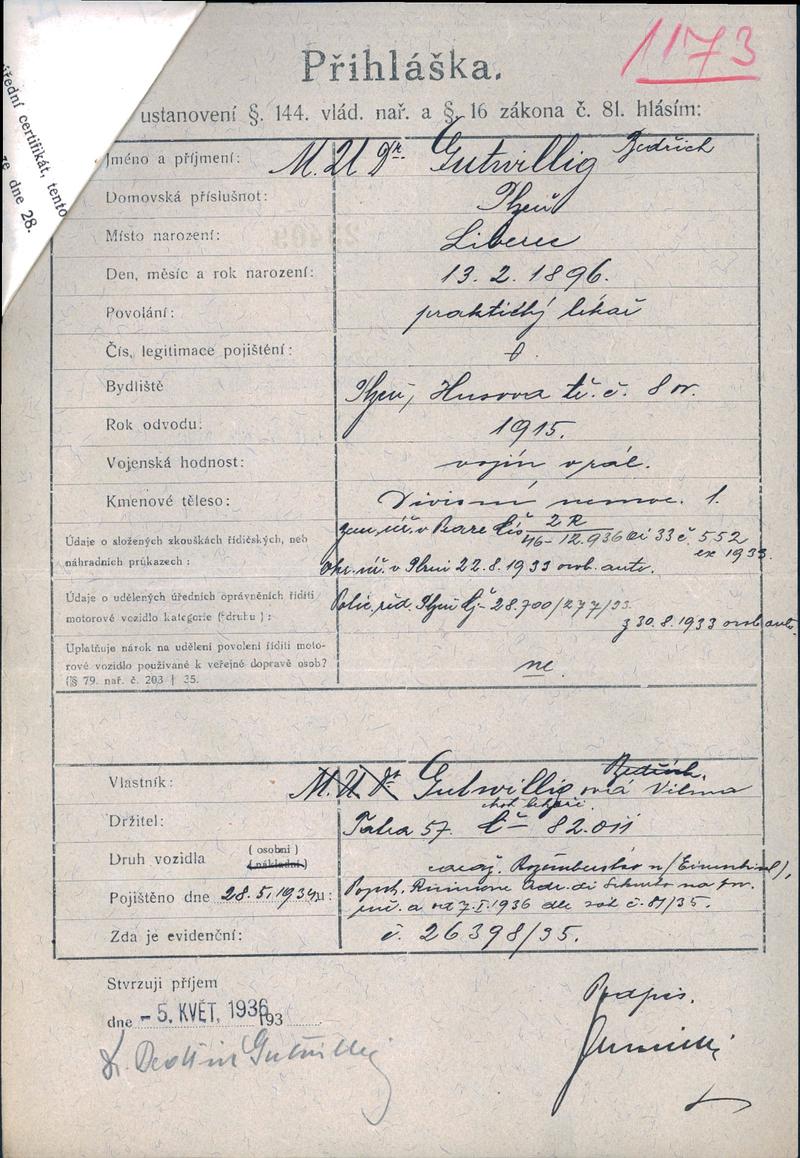 1173
Přihláška.
ústanovení §. 144. vlád. nař. a §. 16 zákona č. 81. hlásím:
řední certifikát, tento
ze dne 28.
Jméno a příjmení: M. U Dr. Gutwillig Bedřich
Domovská příslušnot: Plzeň
Místo narození: Liberec
Den, měsíc a rok narození: 13. 2. 1896.
Povolání: praktický lékař
Čís, legitimace pojištění:
Bydliště Plzeň, Husova tř. č. 8 
Rok odvodu: 1915.
Vojenská hodnost: vojín 
Kmenové těleso: Divisní nemoc. 1.
Údaje o složených zkouškách řidičských, neb
náhradních průkazech:
2 R
46-12.936 33 č. 552
ex 1933
v Plzni 22.8.1933 osob. auto.
Údaje o udělených úředních oprávněních řídíti
motorové vozidlo kategorie (druhu):
Polic. řed. Plzeň čj- 28.700/277/33
z 30.8.1933 osob auto.
Uplatňuje nárok na udělení povolení říditi moto-
rové vozidlo používané k veřejné dopravě osob?
(§ 79. nař. č. 203 | 35.
ne
Vlastník: M. U. Dr Gutwillig Bedřich. ová Vilma
choť lékaře.
Držitel: Tatra 57. č- 82.011
Druh vozidla (osobní)
(nákladní)
Pojištěno dne 28.5.1934 u:
a od 7.I.1936 dle č. 81/35.
Zda je evidenční: č. 26398/35.
Stvrzuji příjem
dne - 5. KVĚT. 1936 193
Podpis.
Dr. Bedřich Gutwillig